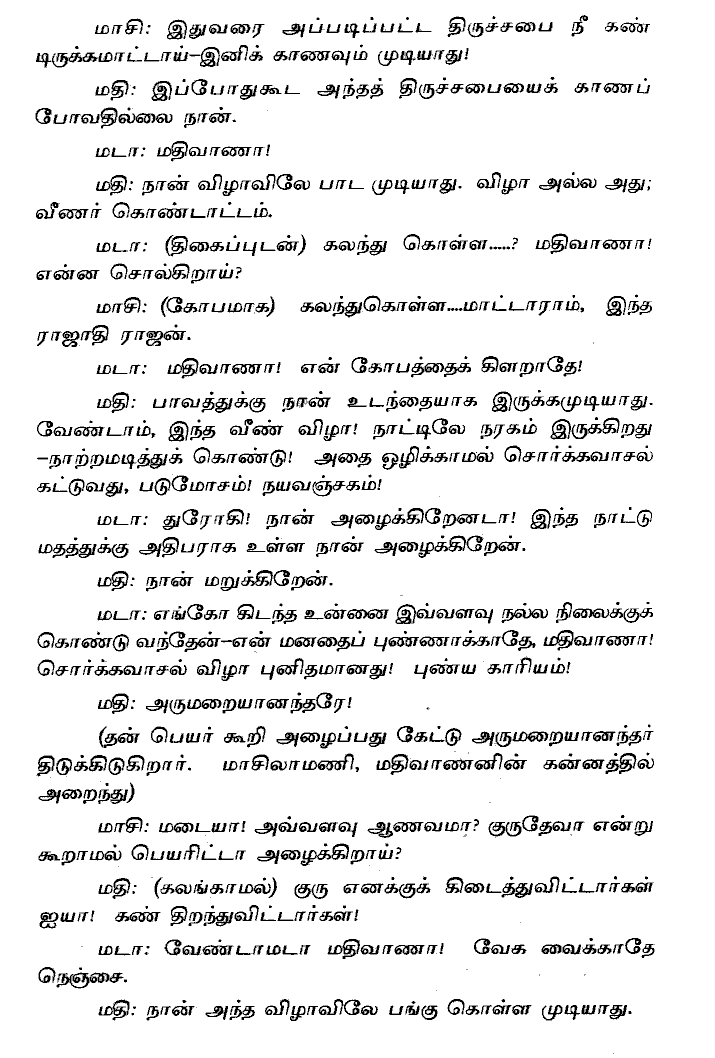 மாசி: இதுவரை அப்படிப்பட்ட திருச்சபை நீ கண்
டிருக்கமாட்டாய்–இனிக் காணவும் முடியாது!
மதி: இப்போதுகூட அந்தத் திருச்சபையைக் காணப்
போவதில்லை நான்.
மடா: மதிவாணா!
மதி: நான் விழாவிலே பாட முடியாது. விழா அல்ல அது;
வீணர் கொண்டாட்டம்.
மடா: (திகைப்புடன்) கலந்து கொள்ள.....? மதிவாணா!
என்ன சொல்கிறாய்?
மாசி: (கோபமாக) கலந்துகொள்ள....மாட்டாராம், இந்த
ராஜாதி ராஜன்.
மடா: மதிவாணா! என் கோபத்தைக் கிளறாதே!
மதி: பாவத்துக்கு நான் உடந்தையாக இருக்கமுடியாது.
வேண்டாம், இந்த வீண் விழா! நாட்டிலே நரகம் இருக்கிறது
–நாற்றமடித்துக் கொண்டு! அதை ஒழிக்காமல் சொர்க்கவாசல்
கட்டுவது, படுமோசம்! நயவஞ்சகம்!
மடா: துரோகி! நான் அழைக்கிறேனடா! இந்த நாட்டு
மதத்துக்கு அதிபராக உள்ள நான் அழைக்கிறேன்.
மதி: நான் மறுக்கிறேன்.
மடா: எங்கோ கிடந்த உன்னை இவ்வளவு நல்ல நிலைக்குக்
கொண்டு வந்தேன்–என் மனதைப் புண்ணாக்காதே, மதிவாணா!
சொர்க்கவாசல் விழா புனிதமானது! புண்ய காரியம்!
மதி: அருமறையானந்தரே!
(தன் பெயர் கூறி அழைப்பது கேட்டு அருமறையானந்தர்
திடுக்கிடுகிறார். மாசிலாமணி, மதிவாணனின் கன்னத்தில்
அறைந்து)
மாசி: மடையா! அவ்வளவு ஆணவமா? குருதேவா என்று
கூறாமல் பெயரிட்டா அழைக்கிறாய்?
மதி: (கலங்காமல்) குரு எனக்குக் கிடைத்துவிட்டார்கள்
ஐயா! கண் திறந்துவிட்டார்கள்!
மடா: வேண்டாமடா மதிவாணா! வேக வைக்காதே
நெஞ்சை.
மதி: நான் அந்த விழாவிலே பங்கு கொள்ள முடியாது.